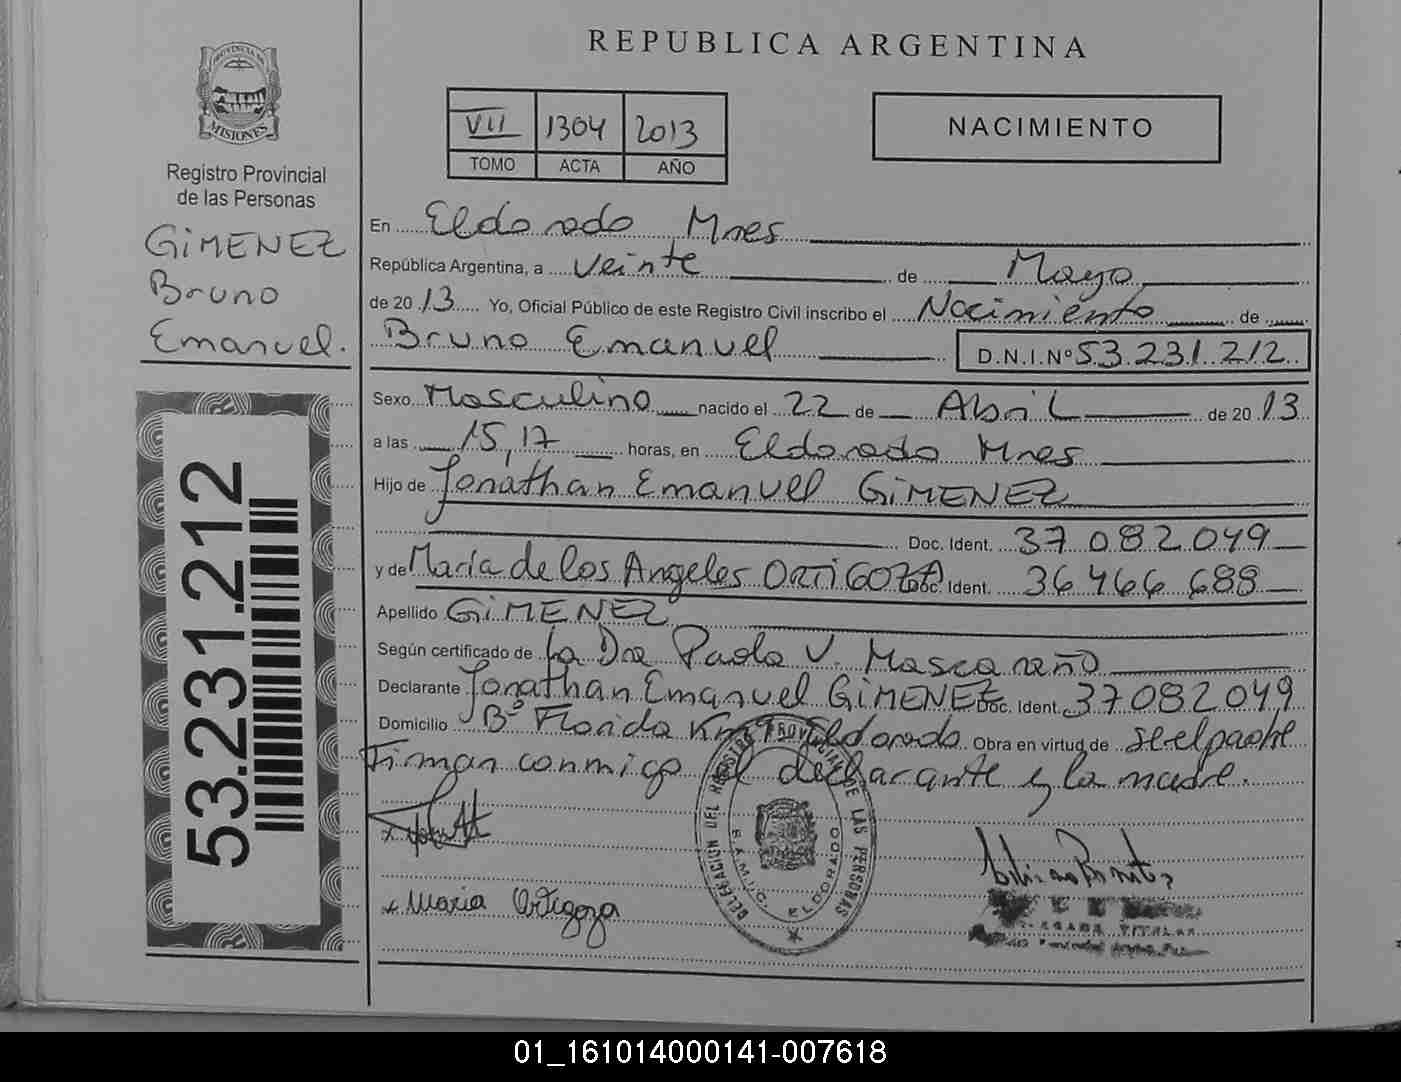 REPUBLICA ARGENTINA
PROVINCIA DE
MISIONES
Registro Provincial
de las Personas
GIMENEZ
Bruno
Emanuel.
53.231.212
VII 1304 2013
TOMO ACTA AÑO
NACIMIENTO
En Eldorado Mnes
República Argentina, a veinte de Mayo
de 2013 Yo, Oficial Público de este Registro Civil inscribo el Nacimiento de
Bruno Emanuel D.N.I.Nº 53.231.212
Sexo Masculino nacido el 22 de Abril de 2013
a las 15,17 horas, en Eldorado Mnes
Hijo de Jonathan Emanuel GIMENEZ
Doc. Ident. 37.082.049
y de María de los Angeles ORTIGOZA Doc. Ident. 36.466.688
Apellido GIMENEZ
Según certificado de la Dra Paola V. Mascaraño
Declarante Jonathan Emanuel GIMENEZ Doc. Ident. 37082049
Domicilio Bº Florida Km 9 Eldorado Obra en virtud de ser el padre
Firman conmigo el declarante y la madre.
DELEGACION DEL REGISTRO PROVINCIAL DE LAS PERSONAS
S.A.M.I.C. ELDORADO
Maria Ortigoza
TITULAR
01_161014000141-007618